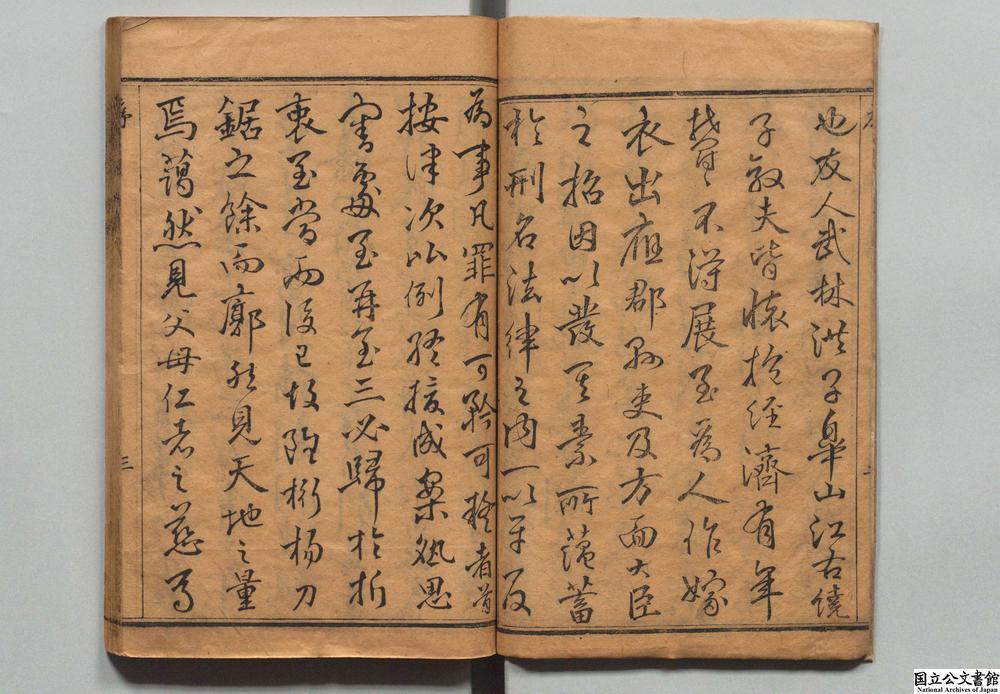 也友人武林洪子皐山江右饒
子夫皆懷抱經濟有年
不得展至為人作嫁
衣出應郡縣吏及方面大臣
之招因以發其素所蘊蓄
於刑名法律之內一以平反
為事凡罪有可矜可者首
按律次比例終援成案熟思
審處至再至三必歸於折
衷至當而後已故雖桁楊刀
鋸之餘而廓然見天地之量
焉藹然見父母仁者之慈焉
序
三
国立公文書館
National Archives of Japan